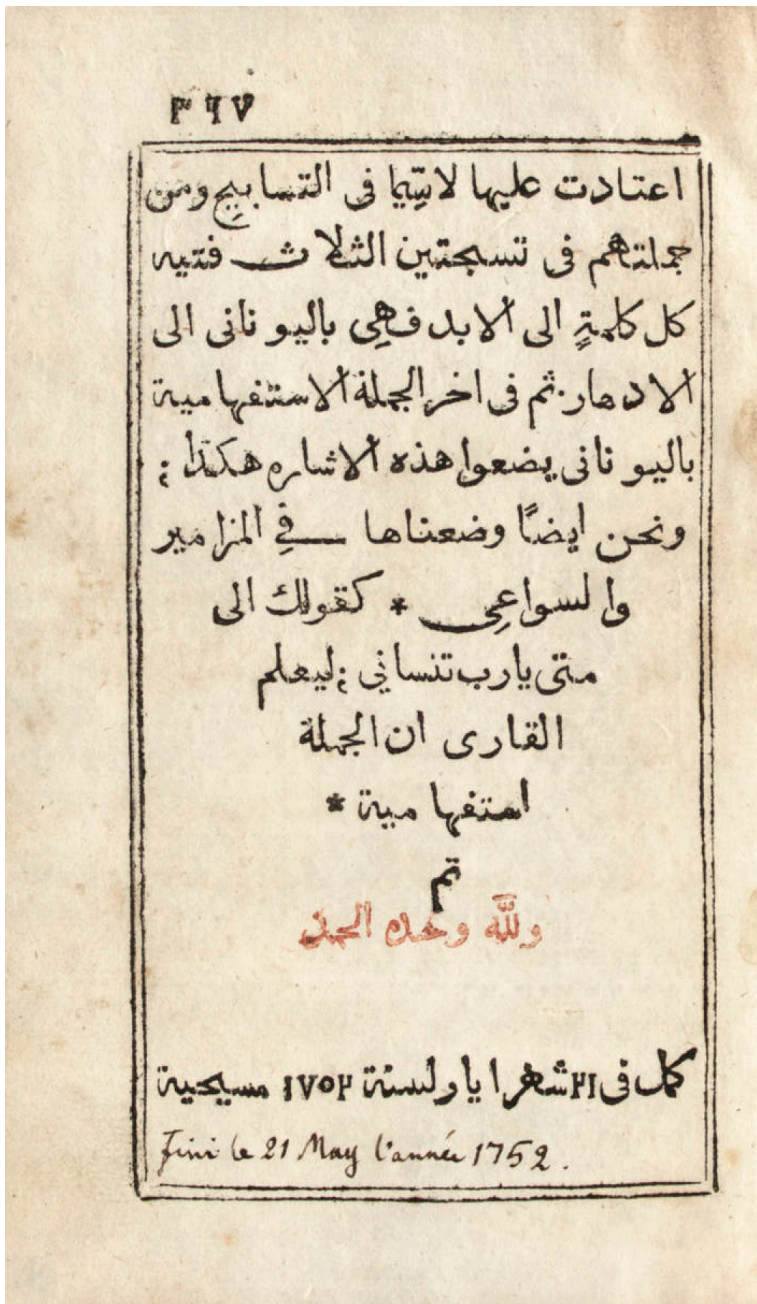 ٣٦٧
اعتادت عليها لاسيّما فى التسابيح ومن
جملتاهم فى تسبحتين الثلاث فتيه
كل كلمةٍ الى الابد فهِى باليونانى الى
الادهار. ثم فى اخر الجملة الاستفهامية
باليونانى يضعوا هذه الاشاره هكذا ;
ونحن ايضًا وضعناها فِي المزامير
والسواعِى * كقولك الى
متى يارب تنسانِي ; ليعلم
القارى ان الجملة
استفهامية *
تم
ولله وحده الحمد
كمل فى ٢١ شهر ايار لسنة ١٧٥٢ مسيحية
fini le 21 May l'année 1752.